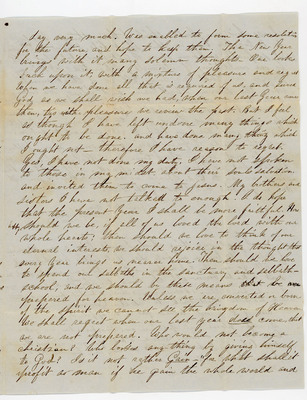 say very much. Was enabled to form some resolutions
for the future and hope to keep them. The New Year
brings with it many solemn thoughts. One looks
back upon it with a mixture of pleasure and regret
When we have done all that is required of us, and served
God as we shall wish we had, when our last Year comes
then, tis with pleasure we review the past. But I feel
as though I had left undone many things which
ought to be done, and have done many things which
I ought not - therefore I have reason to regret.
Yes, I have not done my duty, I have not spoken
to those in my midst about their souls salvation
and invited them to come to Jesus. My brothers and
sisters I have not talked to enough. I do hope
that the present Year I shall be more faithful.
should we be, if all of us loved the Lord with our
whole hearts. Then should we love to think of our
eternal interests, we should rejoice in the thought that
every Year brings us nearer home. Then should we love
to spend our sabbaths in the sanctuary and sabbath
school, and we should by these means be
prepared for heaven. Unless we are converted or born
of the spirit we cannot see the kingdom of Heaven
We shall regret when our last Year does come, that
we are not prepared. Who would not being a
christian? Who looses any thing by giving himself
to God? Is it not rather Gain - for what shall it
profit a man if he gain the whole world and